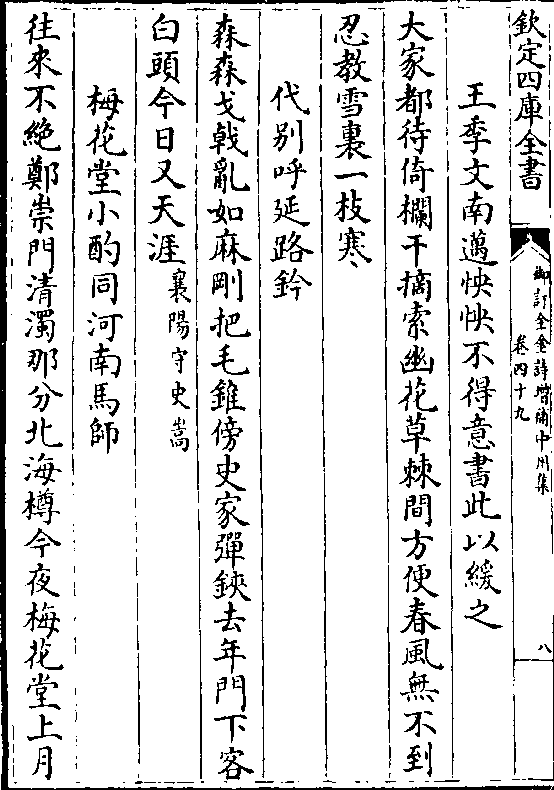 欽定四庫全書
御訂全金詩增補中州集
卷四十九
八
王季文南邁怏怏不得意書此以緩之
大家都待倚欄干摘索幽花草棘間方便春風無不到
忍教雪裏一枝寒
代别呼延路鈐
森森戈戟亂如麻剛把毛錐傍史家彈鋏去年門下客
白頭今日又天涯襄陽守史嵩
梅花堂小酌同河南馬師
往來不絶鄭崇門清濁那分北海樽今夜梅花堂上月